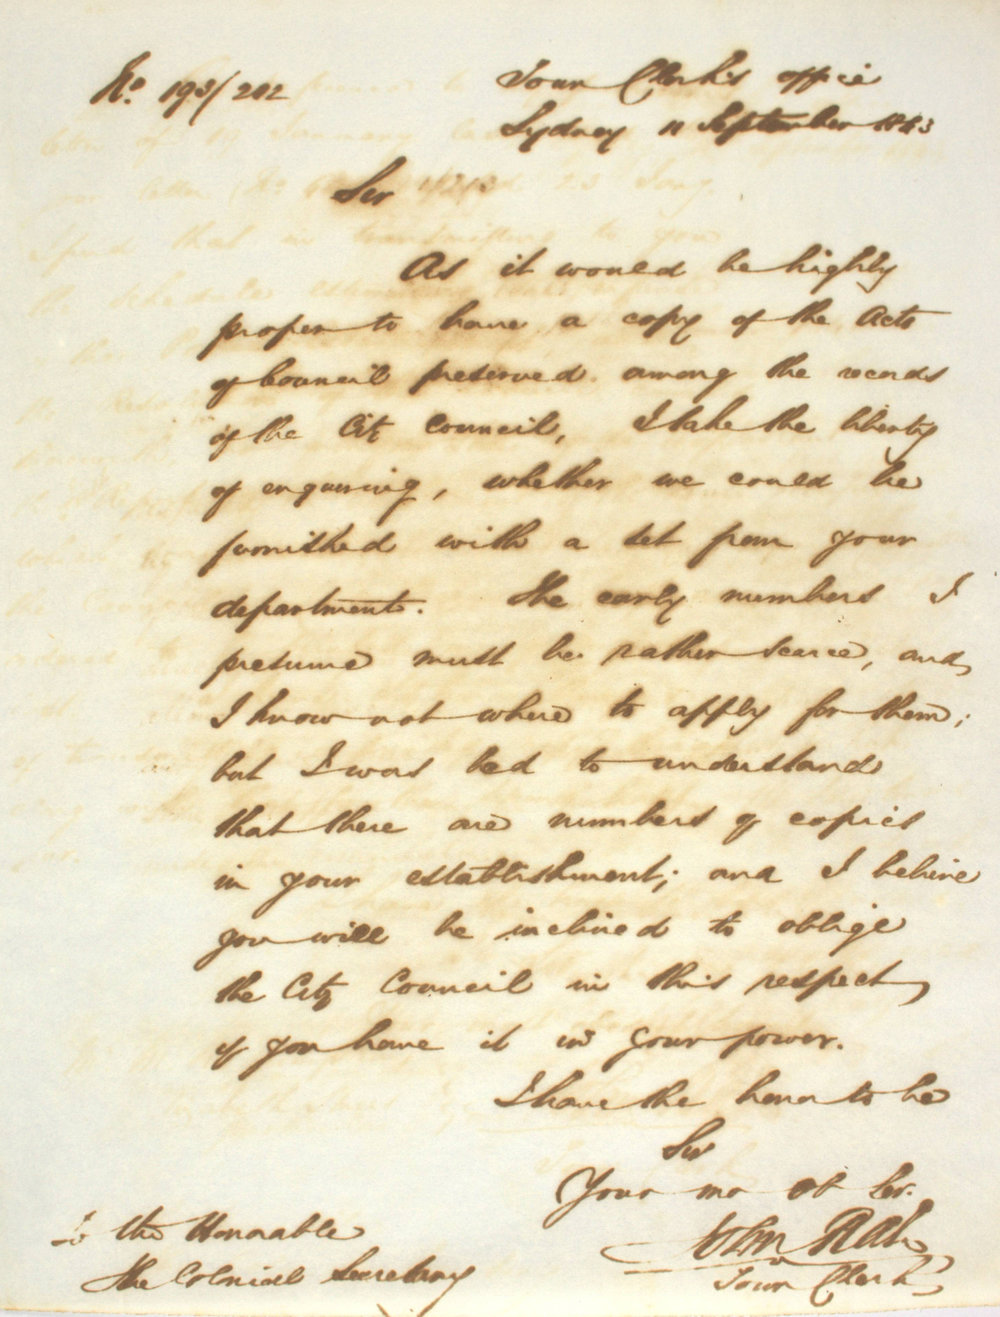 No. 193/202
Town Clerk's office
Sydney 11 September 1843
Sir
As it would be highly
proper to have a copy of the Acts
of Council preserved among the records
of the City Council, I take the liberty
of enquiring, whether we could be
furnished with a set from your
department. The early numbers I
presume must be rather scarce, and
I know not where to apply for them;
but I was led to understand
that there are numbers of copies
in your establishment; and I believe
you will be inclined to oblige
the City Council in this respect
if you have it in your power.
I have the honor to be
Sir
Your mo ob Ser.
John Rae
Town Clerk
To the Honorable
the Colonial Secretary